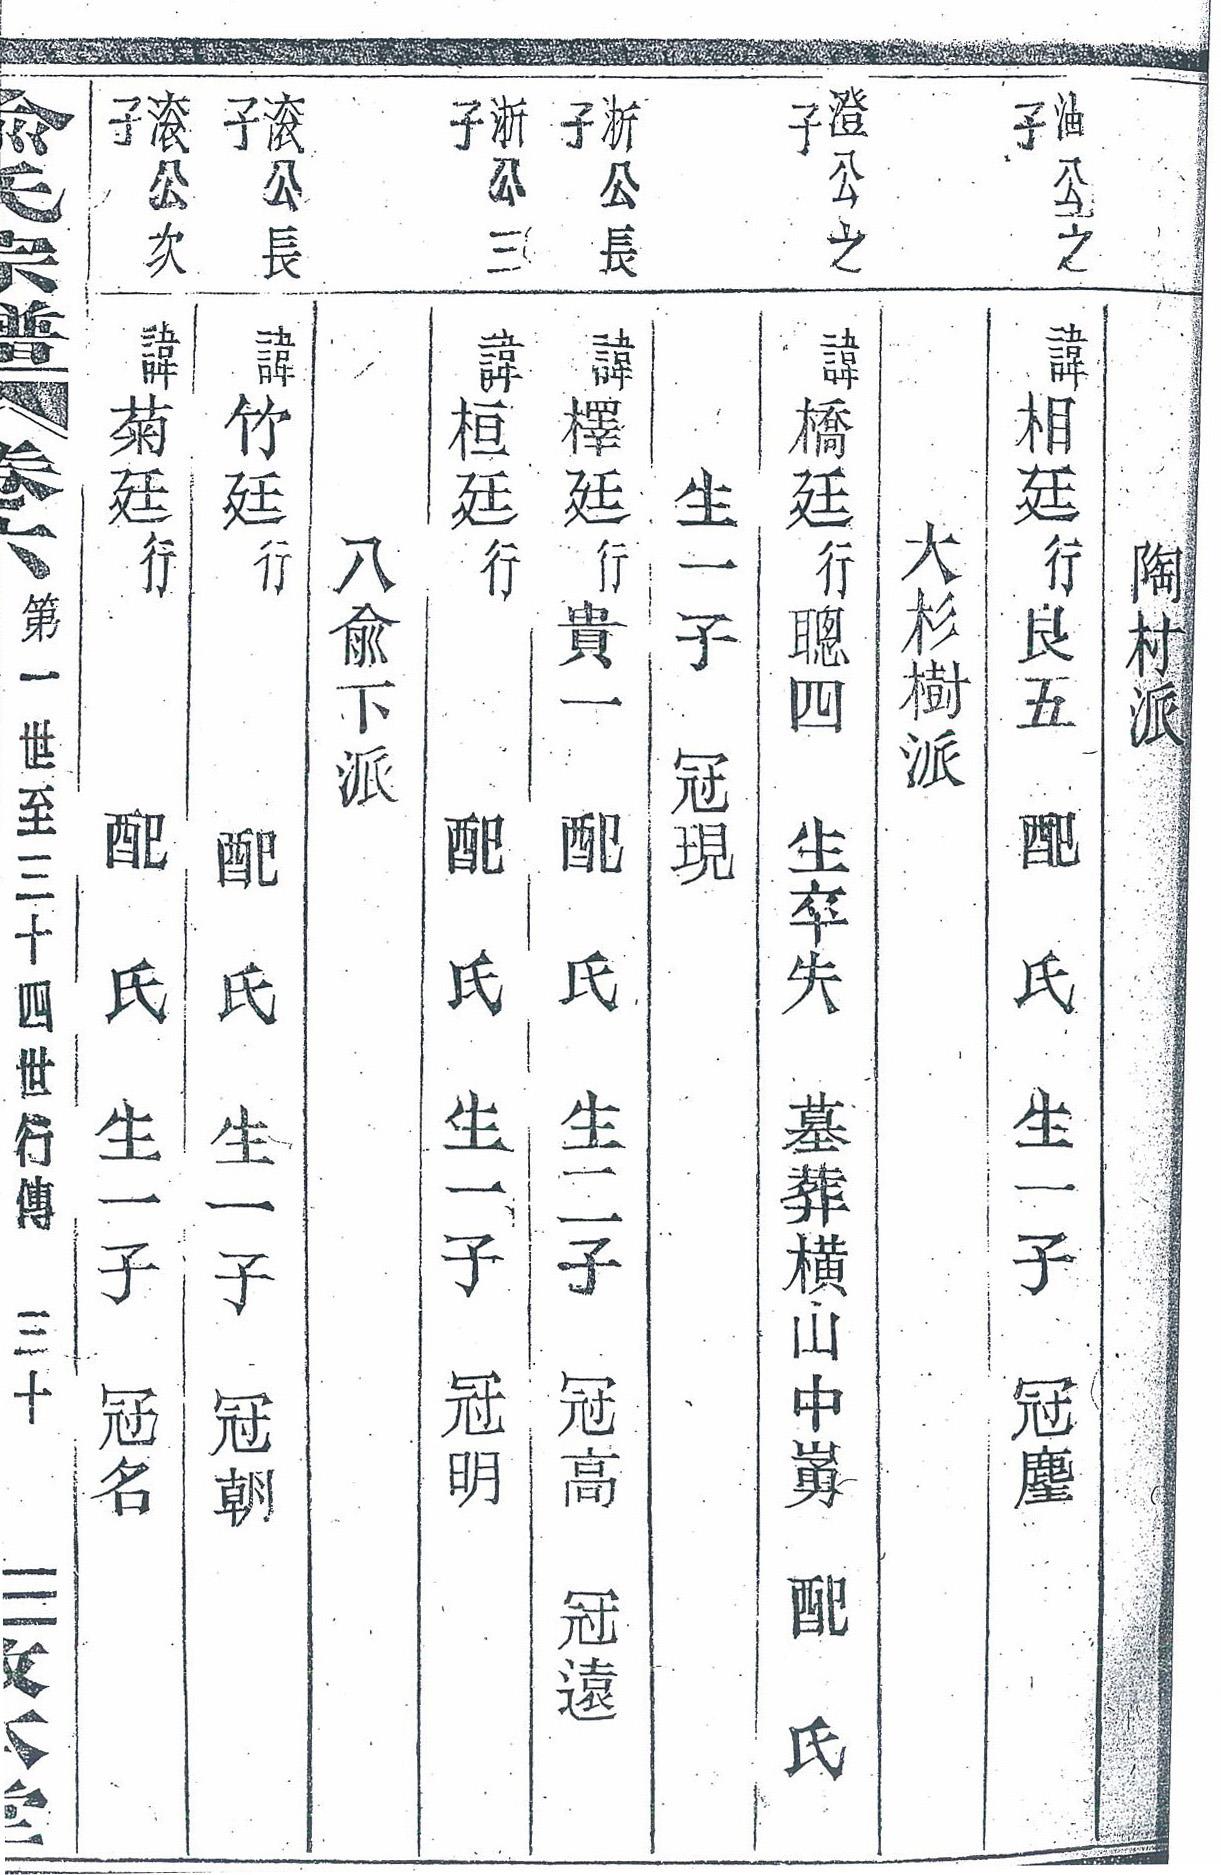 陶村派
油公之子
諱相廷行良五 配 氏 生一子 冠塵
大杉樹派
澄公之子
諱橋廷行聰四 生卒失 墓葬橫山中嵩 配 氏
生一子 冠現
浙公長子
諱檡廷行貴一 配 氏 生二子 冠高 冠遠
浙公三子
諱桓廷行 配 氏 生一子 冠明
八俞下派
滚公長子
諱竹廷行 配 氏 生一子 冠朝
滚公次子
諱菊廷行 配 氏 生一子 冠名
俞氏宗譜 卷六 第一世至三十四世行傳 三十 敦本堂